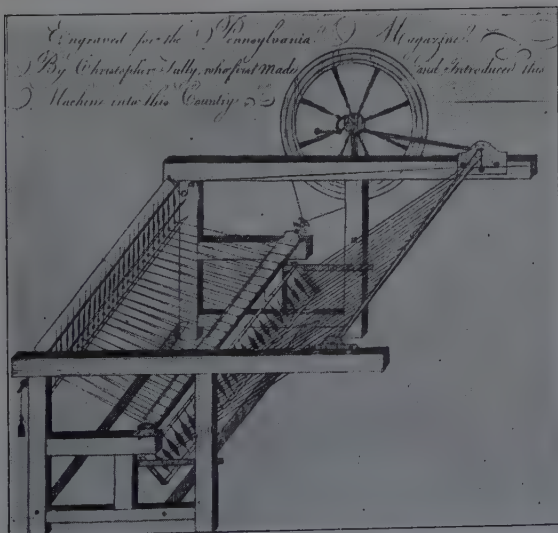 Engraved for the Pennsylvania Magazine.
By Christopher Tully, who first Made and Introduced this
Machine into this Country.